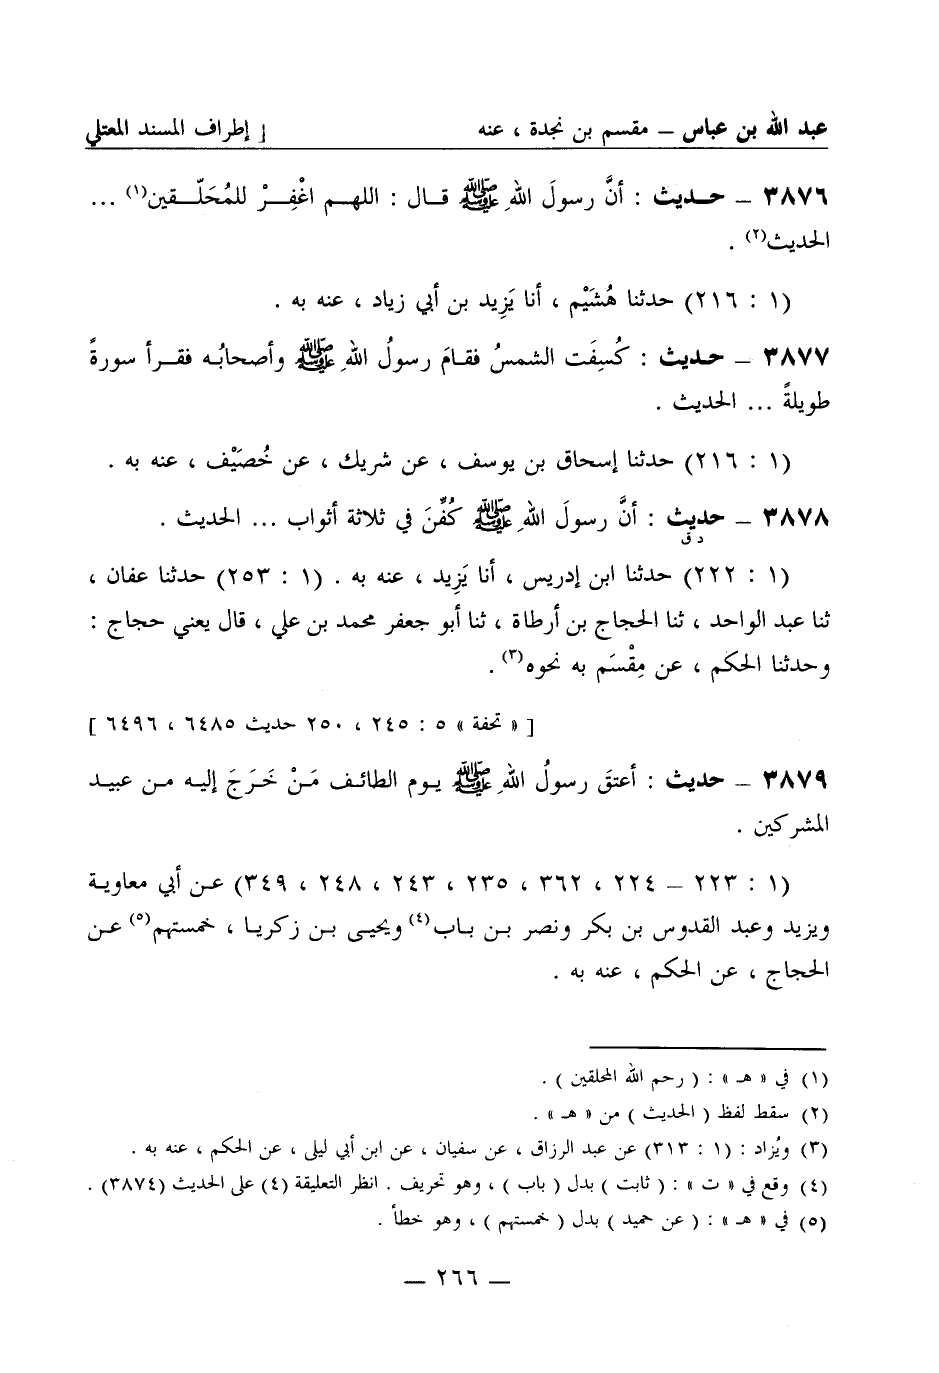 عبد الله بن عباس – مقسم بن نجدة ، عنه [ إطراف المسند المعتلي
٣٨٧٦ – حـديث : أنَّ رسولَ اللهِ ﷺ قـال : اللهـم اغْفِـرْ للمُحَلّـقين(١) ...
الحديث(٢) .
(١ : ٢١٦) حدثنا هُشَيْم ، أنا يَزِيد بن أبي زياد ، عنه به .
٣٨٧٧ – حـديث : كُسِفَت الشمسُ فقـامَ رسولُ اللهِ ﷺ وأصحابُـه فقـرأ سورةً
طويلةً ... الحديث .
(١ : ٢١٦) حدثنا إسحاق بن يوسف ، عن شريك ، عن خُصَيْف ، عنه به .
٣٨٧٨ – حديث : أنَّ رسولَ اللهِ ﷺ كُفِّنَ في ثلاثة أثواب ... الحديث .
د ق
(١ : ٢٢٢) حدثنا ابن إدريس ، أنا يَزِيد ، عنه به . (١ : ٢٥٣) حدثنا عفان ،
ثنا عبد الواحد ، ثنا الحجاج بن أرطاة ، ثنا أبو جعفر محمد بن علي ، قال يعني حجاج :
وحدثنا الحكم ، عن مِقْسَم به نحوه(٣) .
[ « تحفة » ٥ : ٢٤٥ ، ٢٥٠ حديث ٦٤٨٥ ، ٦٤٩٦ ]
٣٨٧٩ – حديث : أعتقَ رسولُ اللهِ ﷺ يـوم الطائـف مَـنْ خَـرَجَ إليـه مـن عبيـد
المشركين .
(١ : ٢٢٣ – ٢٢٤ ، ٣٦٢ ، ٢٣٥ ، ٢٤٣ ، ٢٤٨ ، ٣٤٩) عـن أبي معاويـة
ويزيد وعبد القدوس بن بكر ونصر بـن بـاب(٤) ويحيـى بـن زكريـا ، خمستهم(٥) عـن
الحجاج ، عن الحكم ، عنه به .
(١) في « هـ » : ( رحم الله المحلقين ) .
(٢) سقط لفظ ( الحديث ) من « هـ » .
(٣) ويُزاد : (١ : ٣١٣) عن عبد الرزاق ، عن سفيان ، عن ابن أبي ليلى ، عن الحكم ، عنه به .
(٤) وقع في « ت » : ( ثابت ) بدل ( باب ) ، وهو تحريف . انظر التعليقة (٤) على الحديث (٣٨٧٤) .
(٥) في « هـ » : ( عن حميد ) بدل ( خمستهم ) ، وهو خطأ .
— ٢٦٦ —